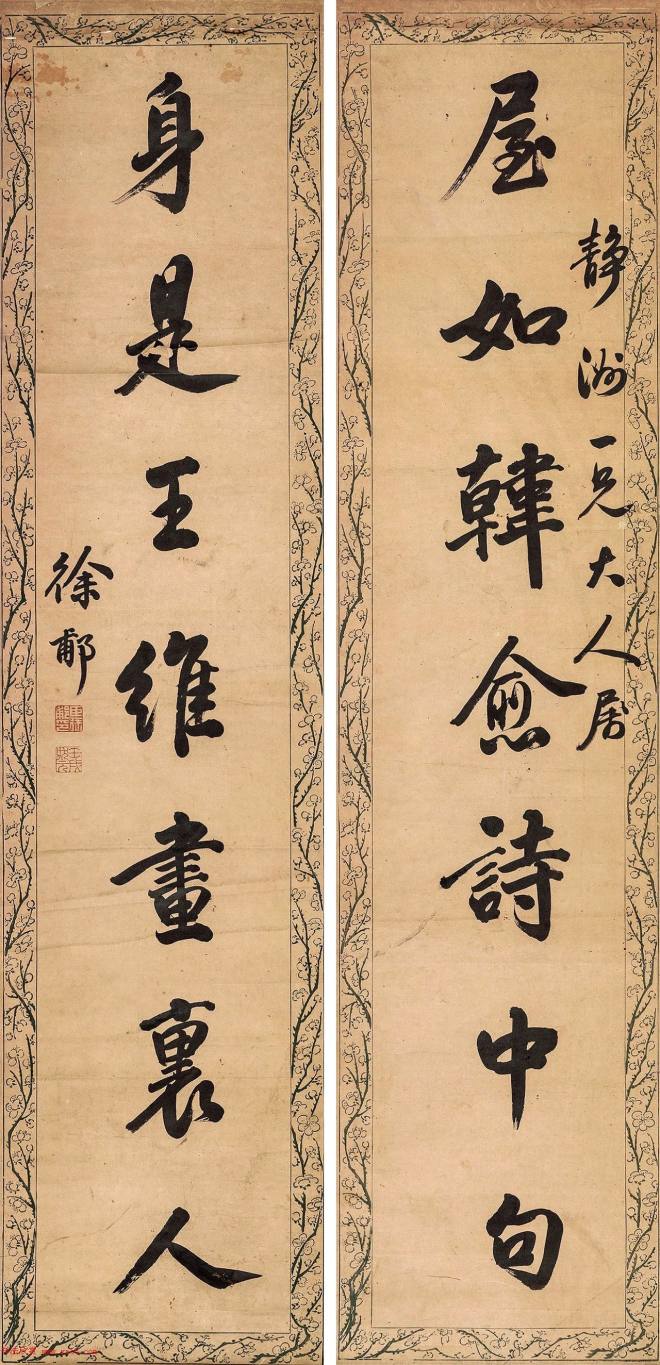 屋如韓愈詩中句
静洲一兄大人屬
身是王維畫裏人
徐郙